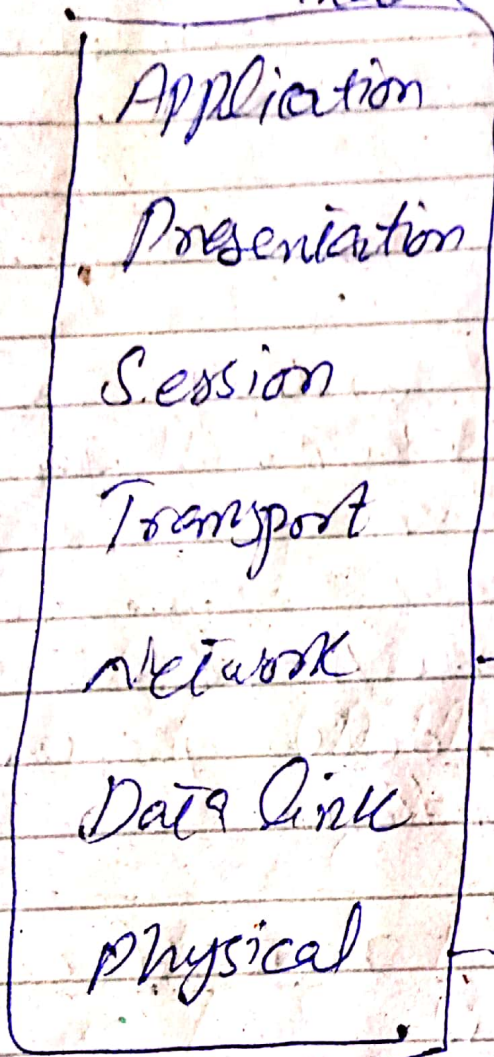 Application
Presentation
Session
Transport
Network
Data link
physical